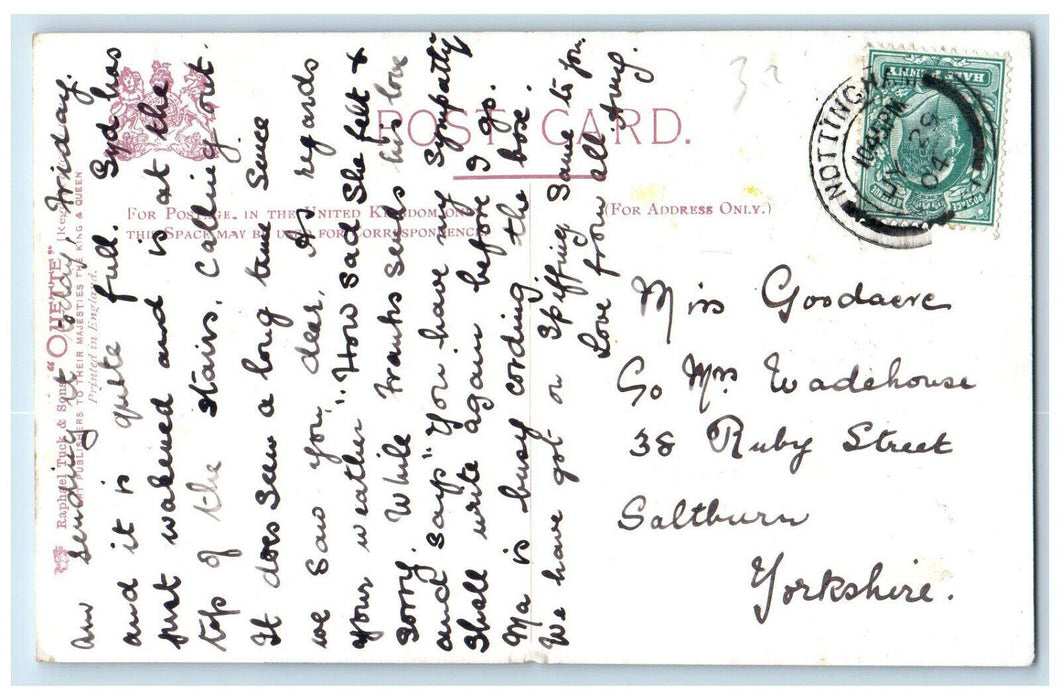 POST CARD.
FOR POSTAGE, IN THE UNITED KINGDOM ONLY
THIS SPACE MAY BE USED FOR CORRESPONDENCE
(FOR ADDRESS ONLY.)
Raphael Tuck & Sons' "OILETTE" [Reg
ART PUBLISHERS TO THEIR MAJESTIES THE KING & QUEEN
Printed in England.
Am sending it today, Friday.
and it is quite full. Syd has
just wakened and is at the
top of the stairs, calling out.
It does seem a long time since
we saw you, dear. As regards
your weather "How sad She felt &
sorry. While Franks sends his love
and says "You have my sympathy
Shall write again before I go.
Ma is busy cording the box.
We have got on spiffing same to you.
Love from all Amy.
NOTTINGHAM
10.45 PM
JY 29
04
HALFPENNY
POSTAGE
Miss Goodacre
C/o Mrs Wadehouse
38 Ruby Street
Saltburn
Yorkshire.